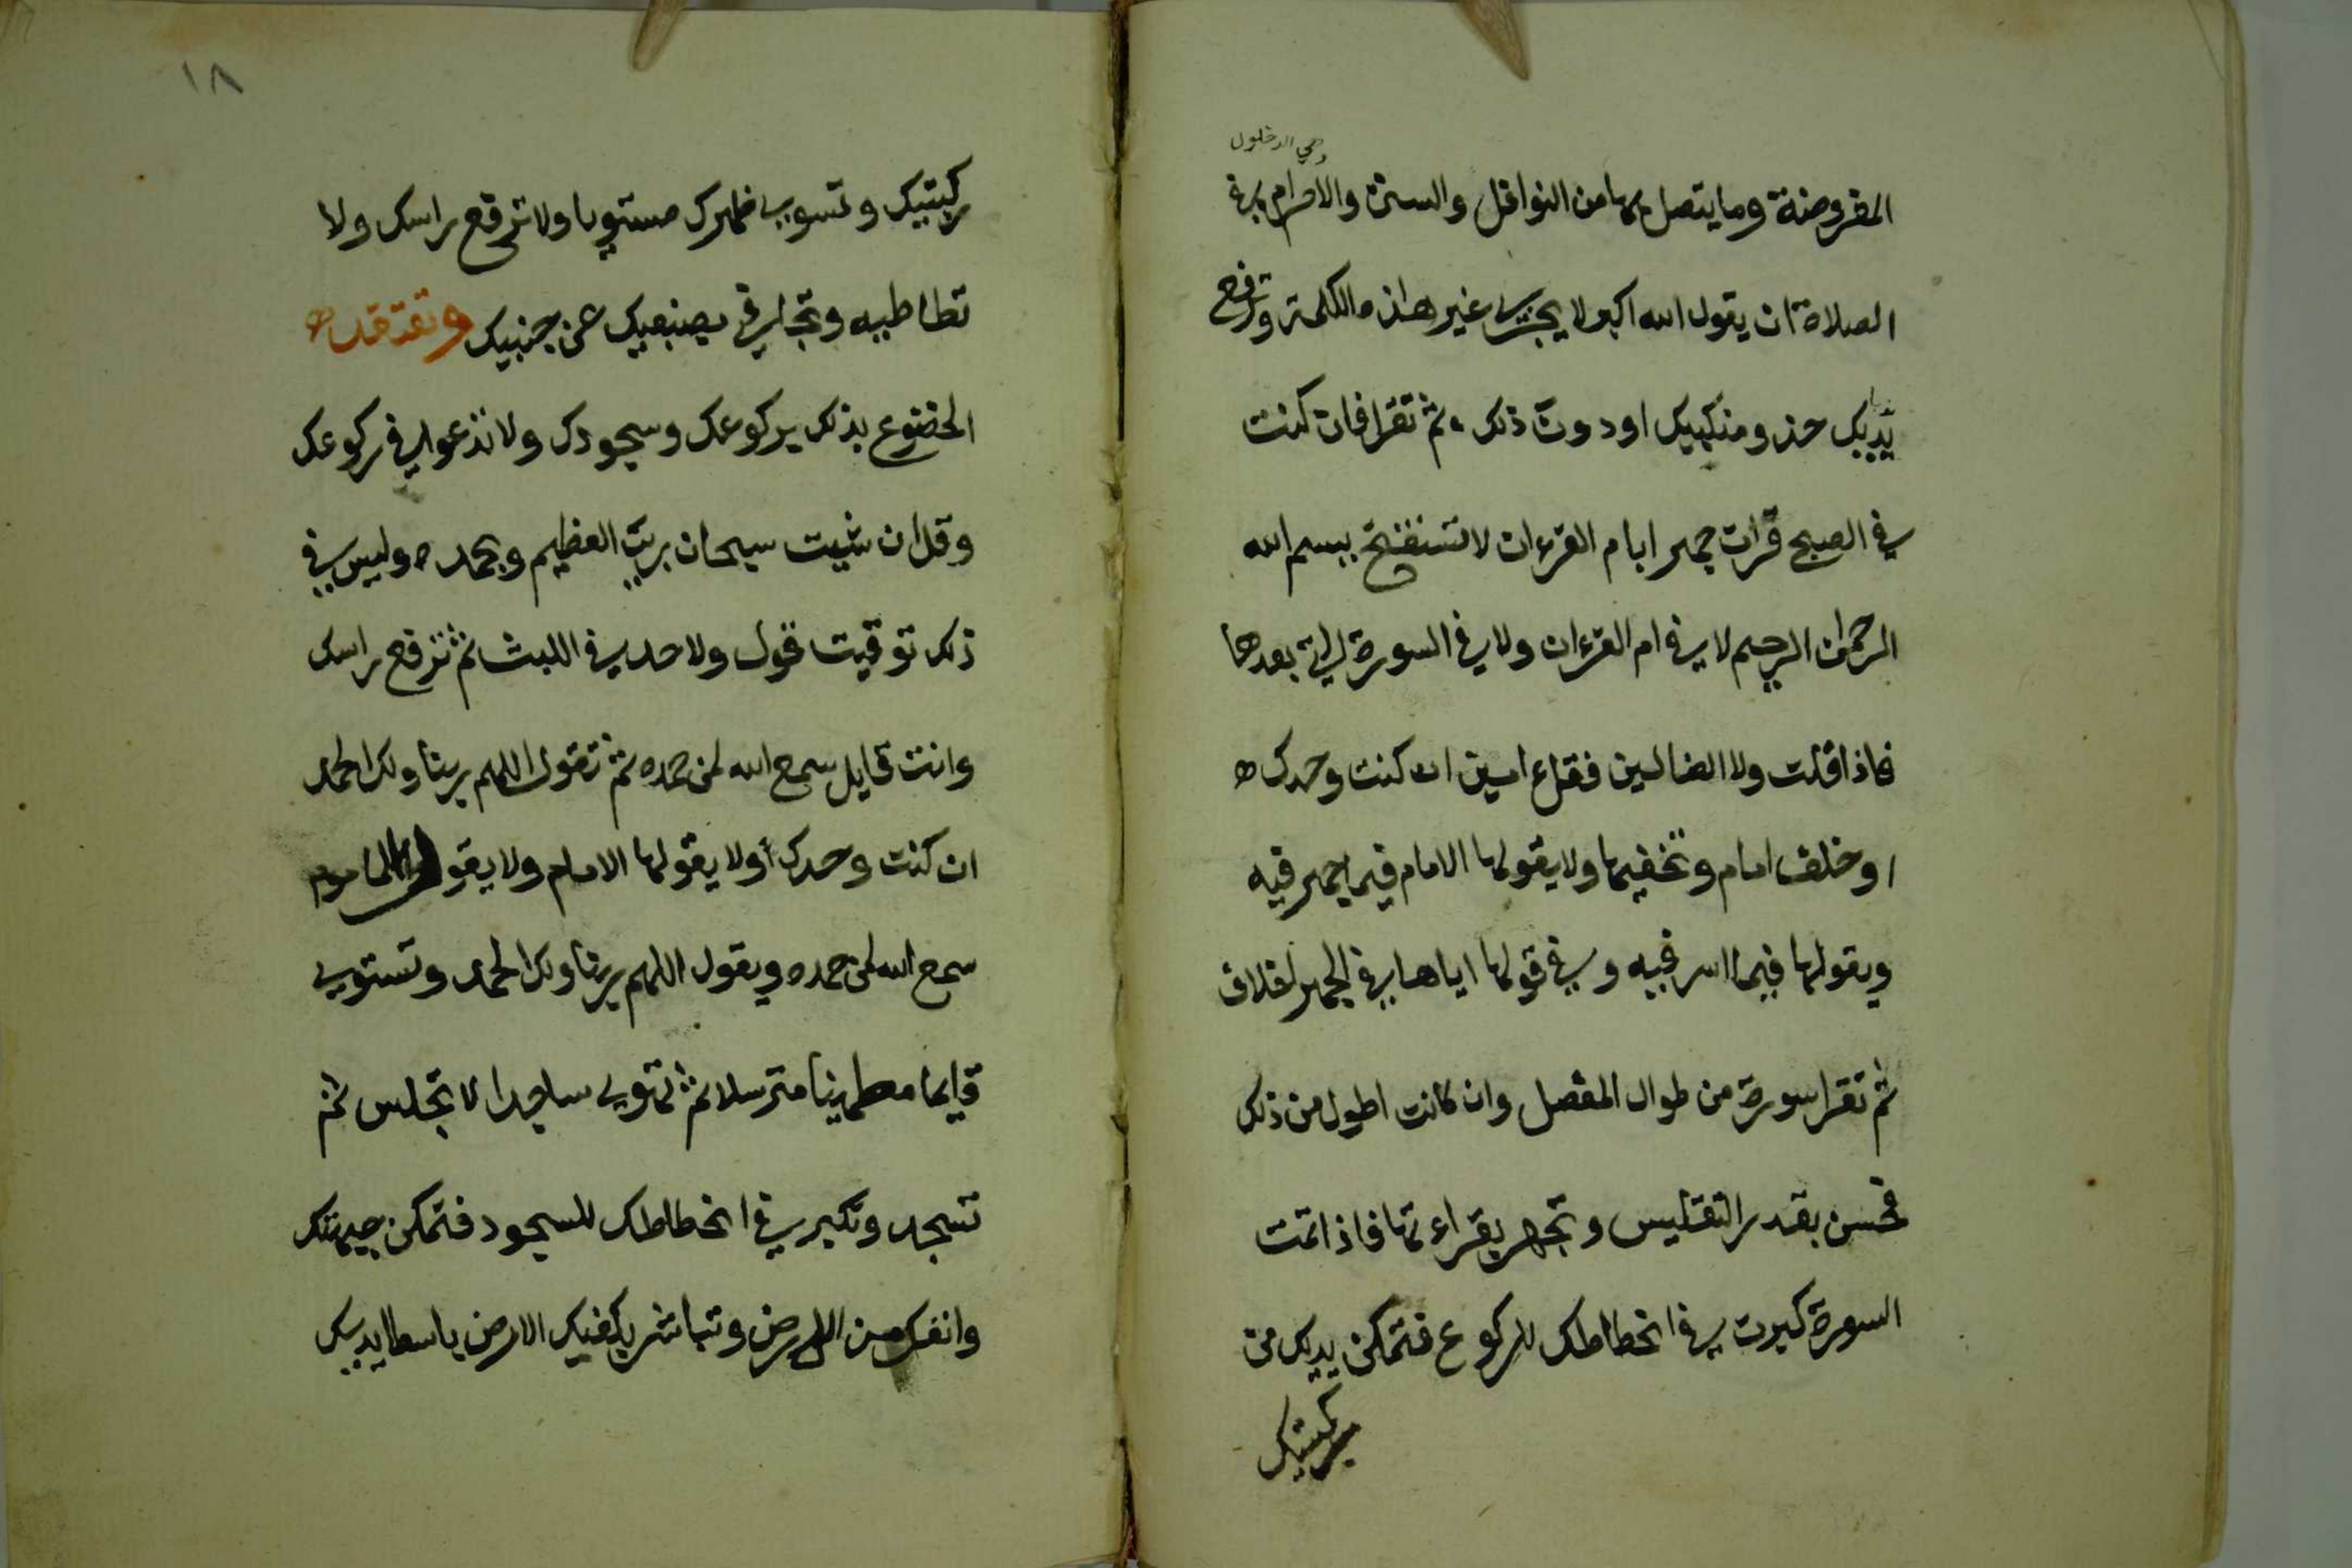 وهي الدخلول
المفروضة وما يتصل بها من النوافل والسنن والاحرام في
الصلاة ان يقول الله اكبر لا يجزي غير هذه الكلمة وترفع
يديك حذو منكبيك او دون ذلك ثم تقرا فان كنت
في الصبح قرات جهرا بام القرءان لا تستفتح ببسم الله
الرحمان الرحيم لا في ام القرءان ولا في السورة التي بعدها
فاذا قلت ولا الضالين فقل ءامين ان كنت وحدك
او خلف امام وتخفيها ولا يقولها الامام فيما جهر فيه
ويقولها فيما اسر فيه وفي قولها اياها في الجهر اختلاف
ثم تقرا سورة من طوال المفصل وان كانت اطول من ذلك
فحسن بقدر التغليس وتجهر بقراءتها فاذا تمت
السورة كبرت في انحطاطك للركوع فتمكن يديك من
ركبتيك
١٨
ركبتيك وتسوي ظهرك مستويا ولا ترفع راسك ولا
تطاطيه وتجافي بضبعيك عن جنبيك وتعتقد
الخضوع بذلك بركوعك وسجودك ولا تدعوا في ركوعك
وقل ان شيت سبحان ربي العظيم وبحمده وليس في
ذلك توقيت قول ولا حد في اللبث ثم ترفع راسك
وانت قايل سمع الله لمن حمده ثم تقول اللهم ربنا ولك الحمد
ان كنت وحدك أولا يقولها الامام ولا يقول الماموم
سمع الله لمن حمده ويقول اللهم ربنا ولك الحمد وتستوي
قايما مطمينا مترسلا ثم تهوي ساجدا لا تجلس ثم
تسجد وتكبر في انحطاطك للسجود فتمكن جبهتك
وانفك من الارض وتباشر بكفيك الارض باسطا يديك